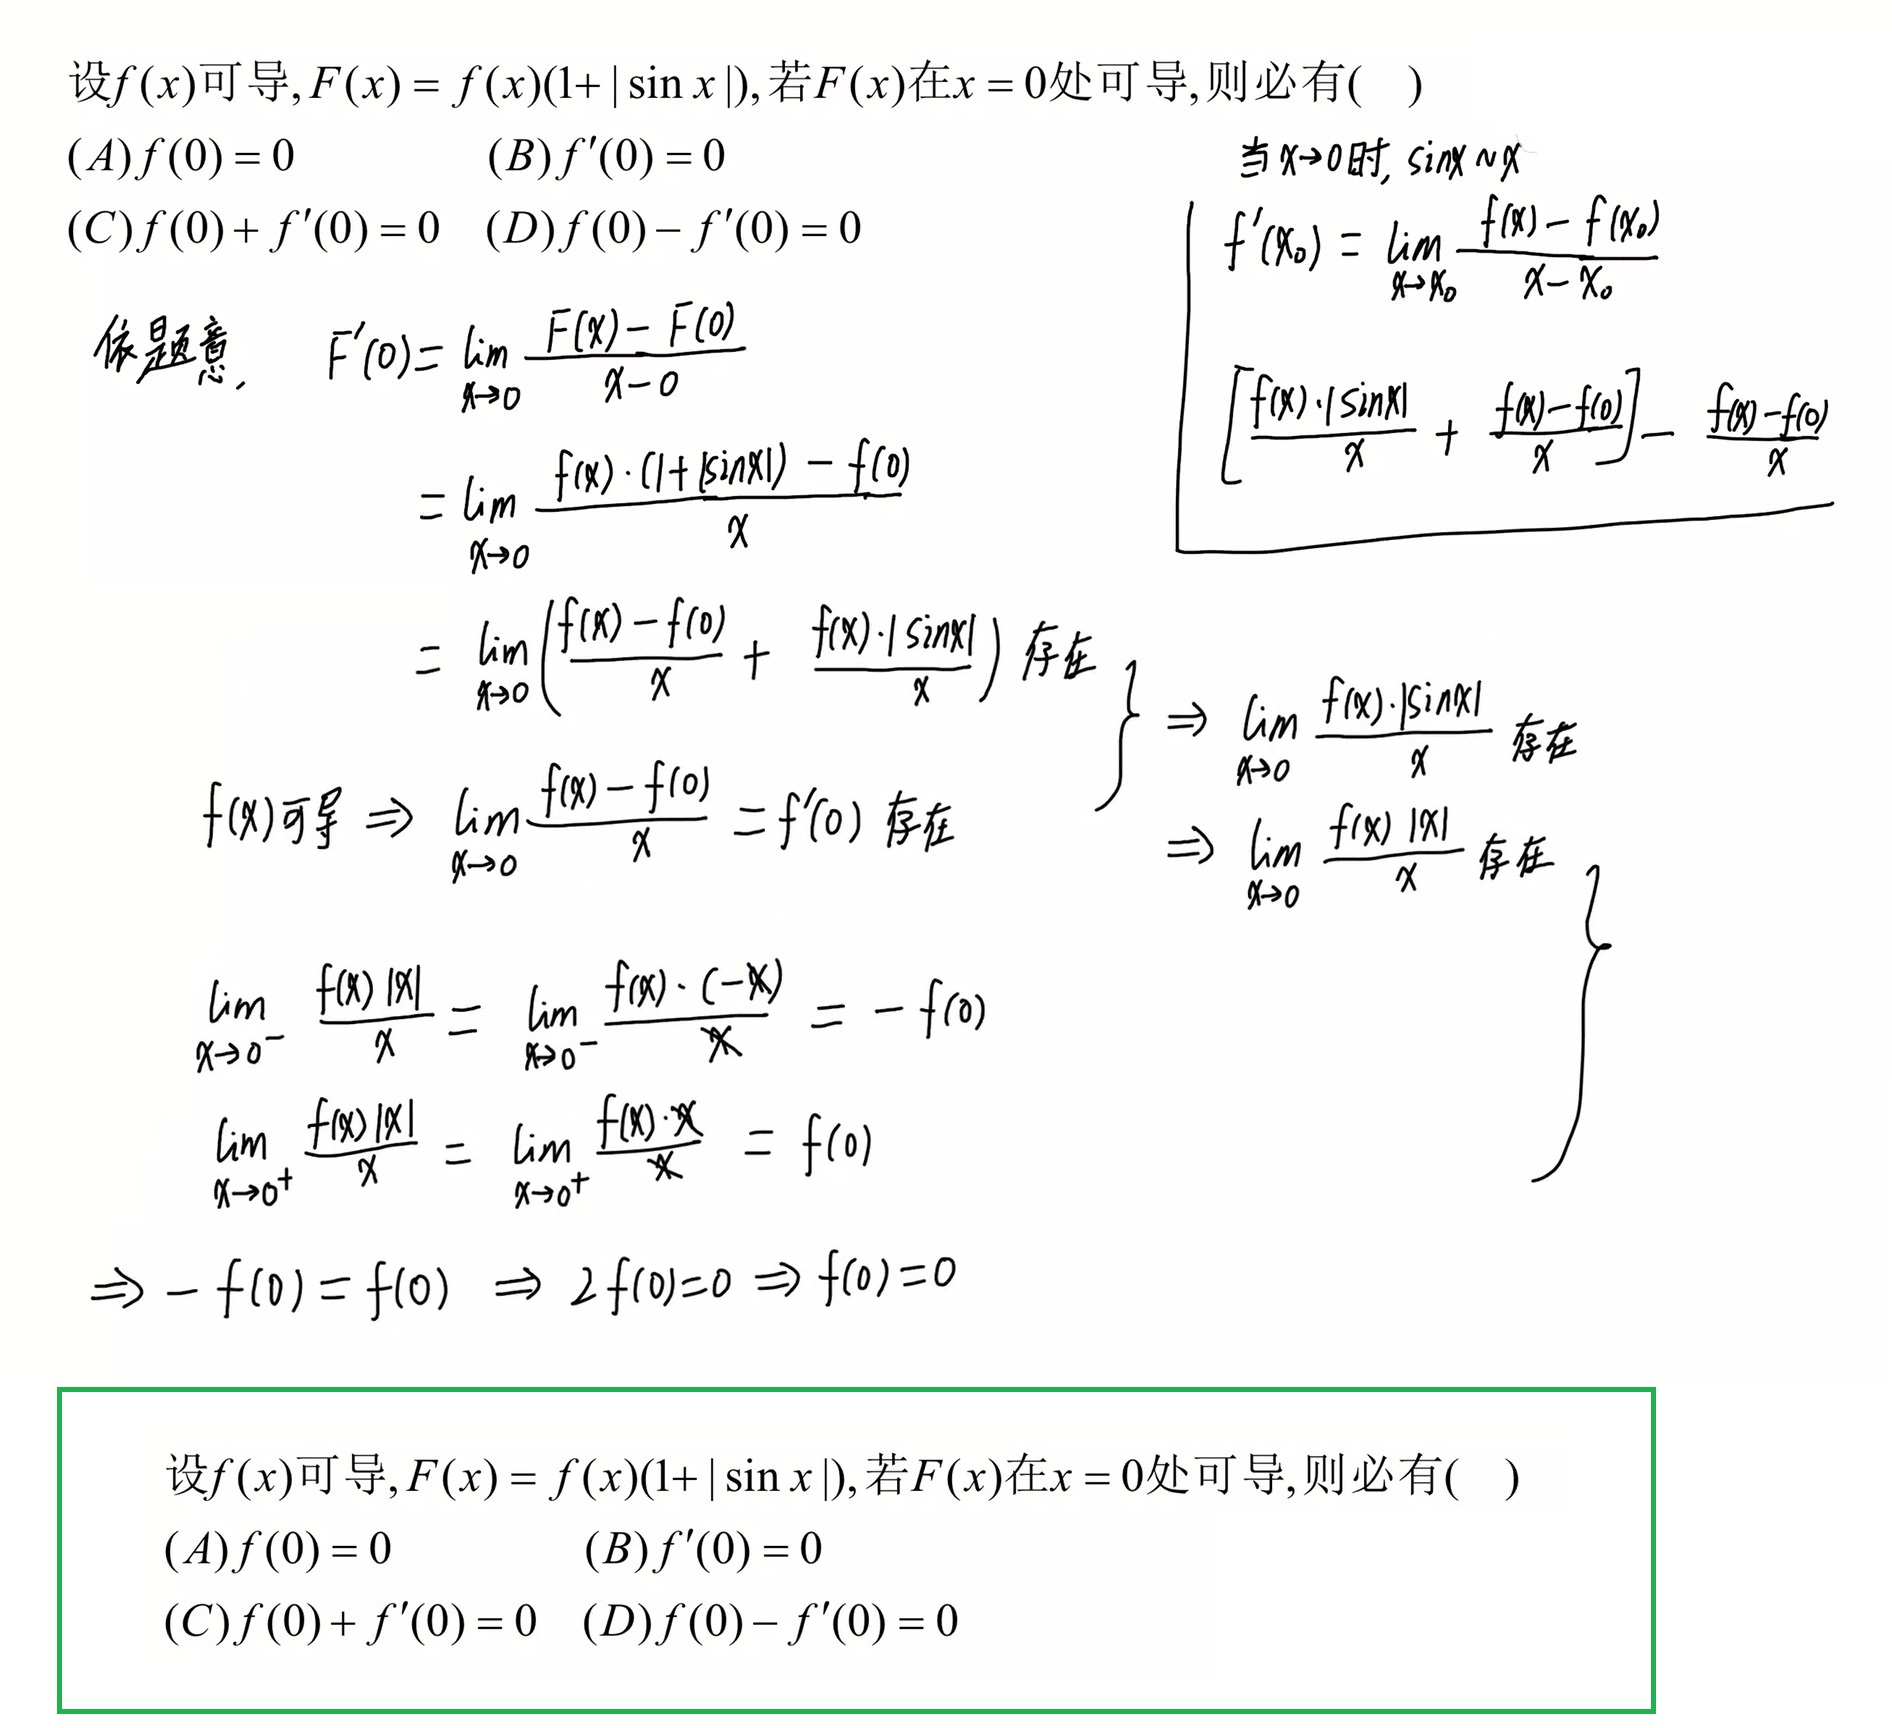 设f(x)可导,F(x) = f(x)(1+|sin x|),若F(x)在x = 0处可导,则必有( )
(A)f(0) = 0 (B)f′(0) = 0
(C)f(0)+f′(0) = 0 (D)f(0)−f′(0) = 0
当x→0时, sinx ~ x
f′(x₀) = lim_{x→x₀} (f(x) − f(x₀))/(x − x₀)
[f(x)·|sinx|/x + (f(x)−f(0))/x] − (f(x)−f(0))/x
依题意, F′(0) = lim_{x→0} (F(x) − F(0))/(x−0)
= lim_{x→0} (f(x)·(1+|sinx|) − f(0))/x
= lim_{x→0} ((f(x) − f(0))/x + f(x)·|sinx|/x) 存在
f(x)可导 ⇒ lim_{x→0} (f(x) − f(0))/x = f′(0) 存在
⇒ lim_{x→0} f(x)·|sinx|/x 存在
⇒ lim_{x→0} f(x)|x|/x 存在
lim_{x→0⁻} f(x)|x|/x = lim_{x→0⁻} f(x)·(−x)/x = −f(0)
lim_{x→0⁺} f(x)|x|/x = lim_{x→0⁺} f(x)·x/x = f(0)
⇒ −f(0) = f(0) ⇒ 2f(0)=0 ⇒ f(0)=0
设f(x)可导,F(x) = f(x)(1+|sin x|),若F(x)在x = 0处可导,则必有( )
(A)f(0) = 0 (B)f′(0) = 0
(C)f(0)+f′(0) = 0 (D)f(0)−f′(0) = 0